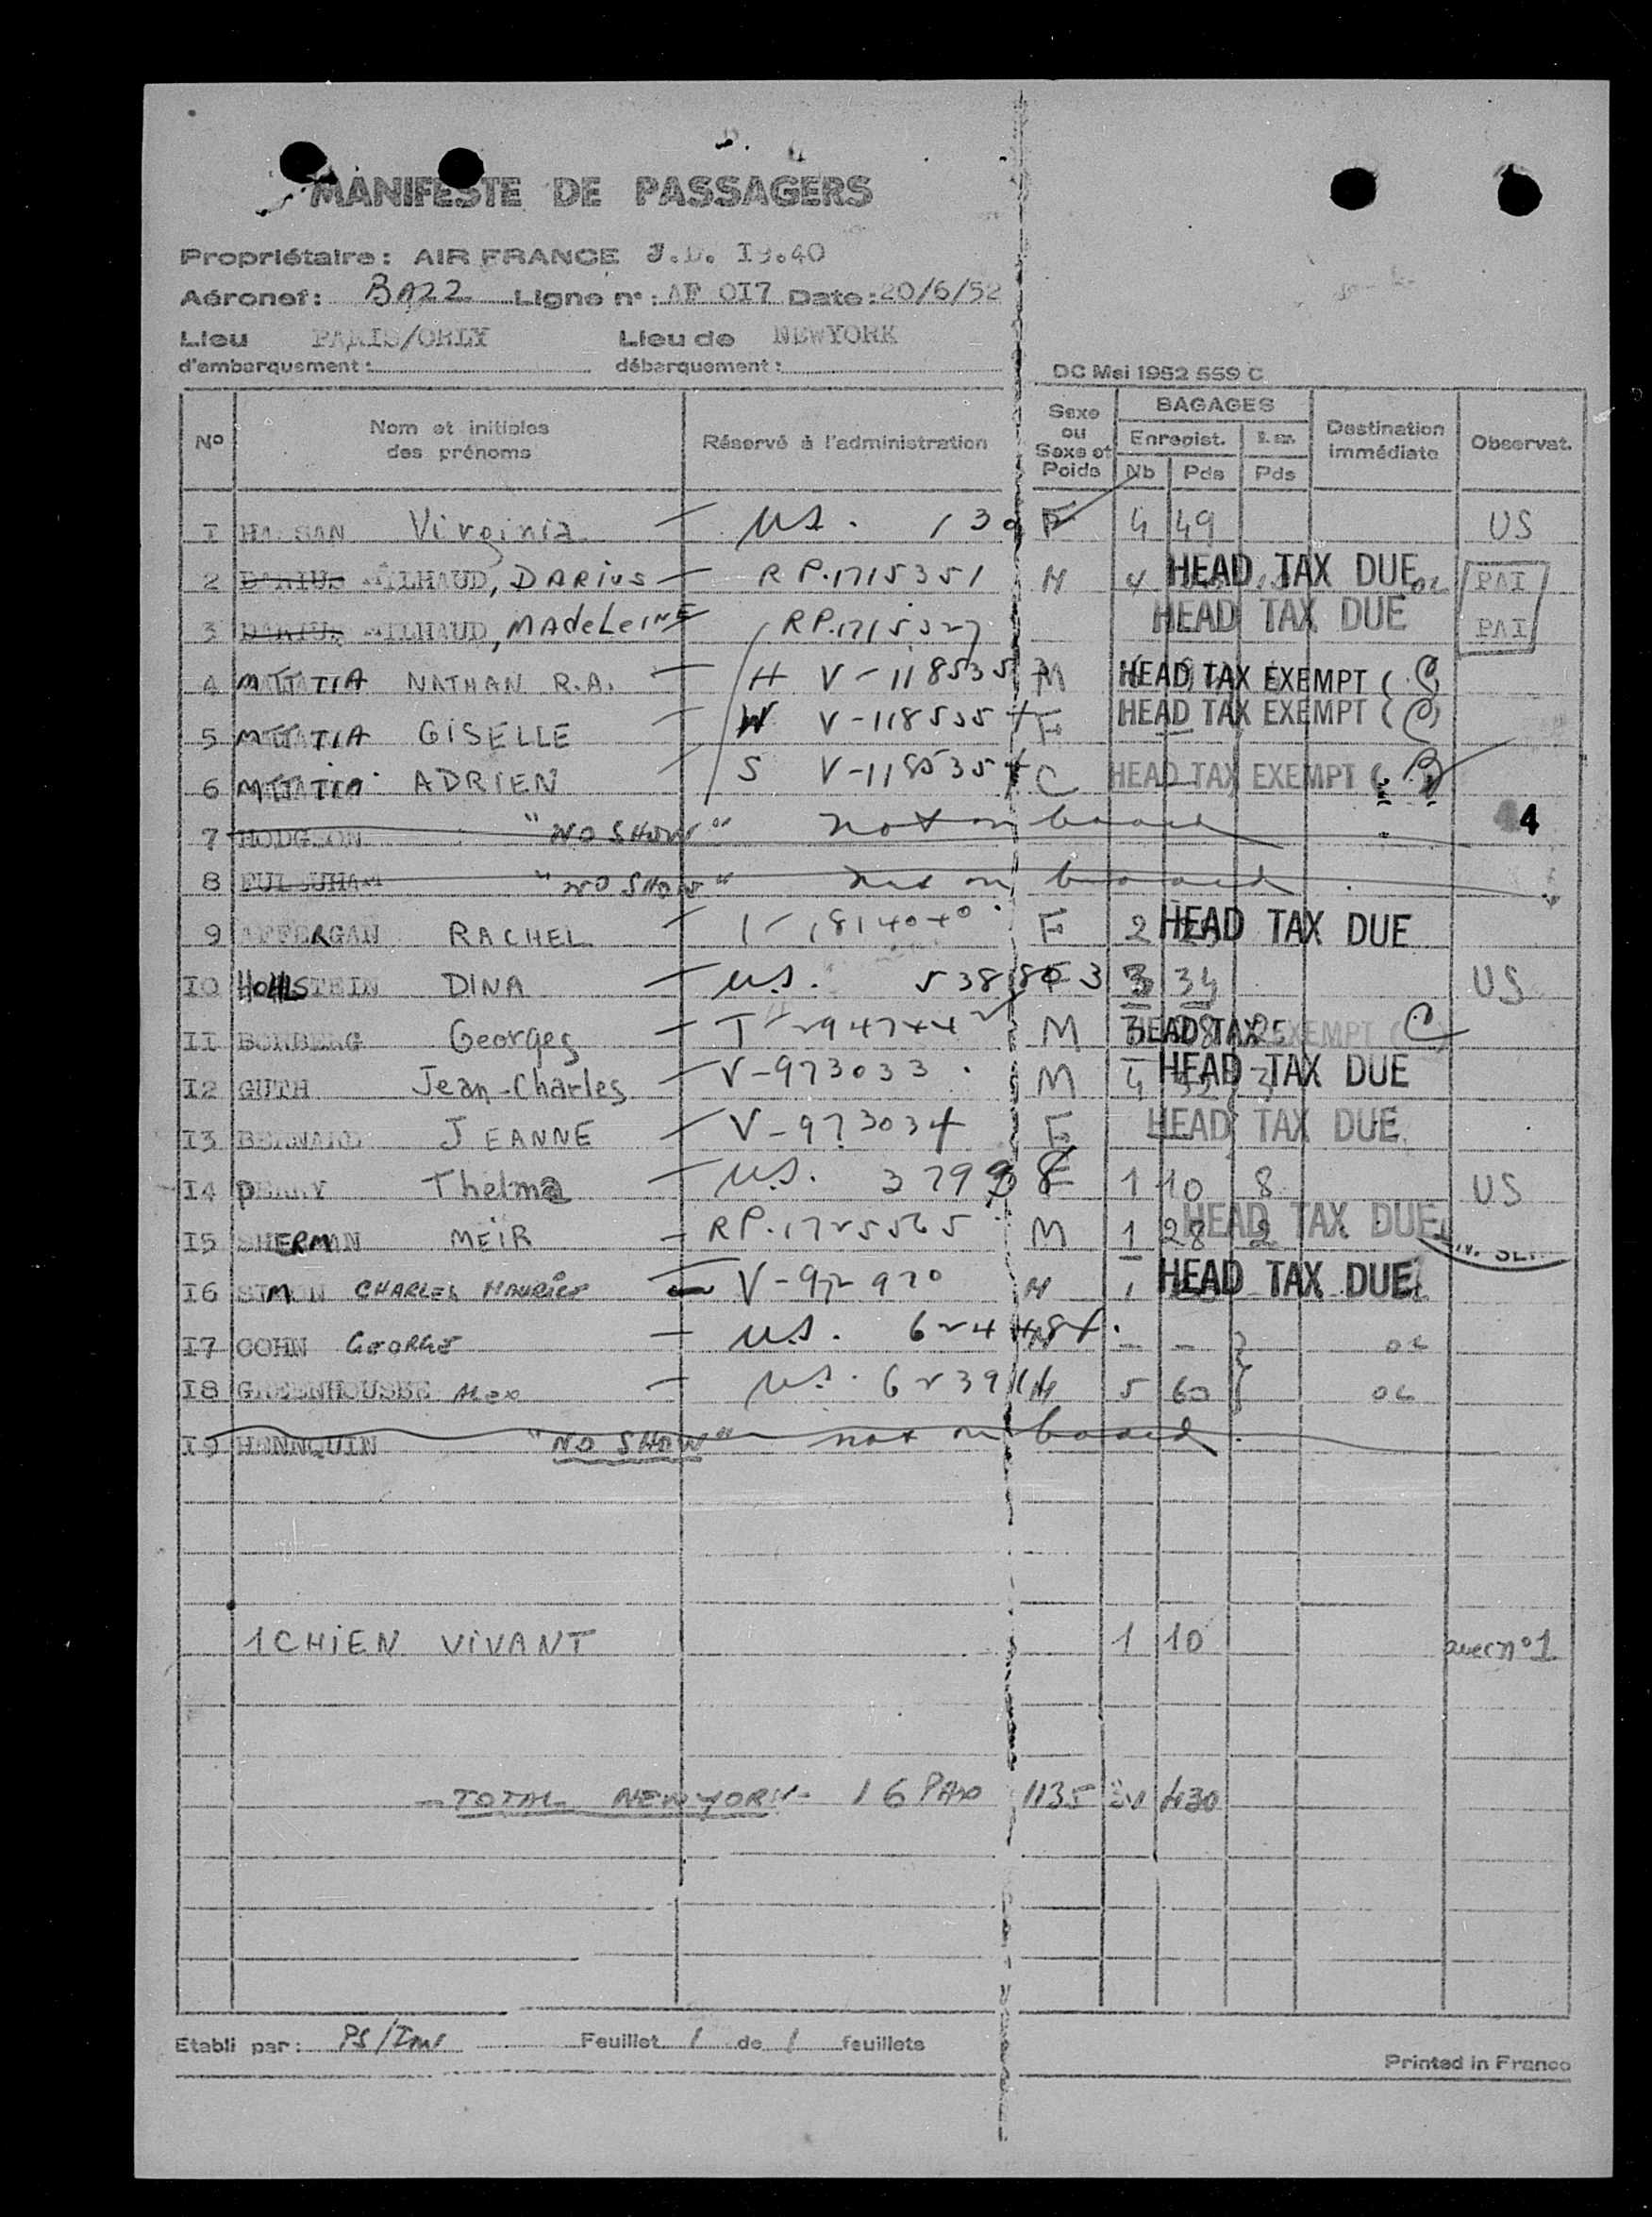 MANIFESTE DE PASSAGERS
Propriétaire: AIR FRANCE
Aéronef: Ligne n°: AF 0I7 Date: 20/6/52
Lieu d'embarquement: PARIS/ORLY Lieu de débarquement: NEWYORK
DC Mai 1952 559 C
N° Nom et initiales des prénoms Réservé à l'administration Sexe ou Sexe et Poids BAGAGES Enregist. Nb Pds Pds Destination immédiate Observat.
I Virginia US. F 4 49 US
2 DARIUS MILHAUD, DARIUS RP.1715351 M 4 HEAD TAX DUE PAI
3 DARIUS MILHAUD, MADELEINE RP.1715327 HEAD TAX DUE PAI
4 MATTATIA NATHAN R.A. H V-118535 M HEAD TAX EXEMPT (
5 MATTATIA GISELLE W V-118535 F HEAD TAX EXEMPT (
6 MATTATIA ADRIEN S V-118535 C HEAD TAX EXEMPT (
4
7 HODGSON "NO SHOW" not on board
8 "NO SHOW" not on board
9 AFFERGAN RACHEL F 2 HEAD TAX DUE
IO HOHLSTEIN DINA U.S. 3 34 US
II Georges M 3 HEAD TAX EXEMPT (
I2 GUTH Jean-Charles V-973033 M 4 HEAD TAX DUE
I3 BERNARD JEANNE V-973034 F HEAD TAX DUE
I4 PERRY Thelma U.S. F 1 10 8 US
I5 SHERMAN MEÏR RP.1725565 M 1 28 2 HEAD TAX DUE
I6 SIMON CHARLES MAURICE M 1 HEAD TAX DUE
I7 COHN GEORGE U.S. M - -
I8 Alex U.S. M 5 60
I9 HENNQUIN "NO SHOW" not on board
1 CHIEN VIVANT 1 10 avec n° 1
TOTAL NEWYORK 16 PAX 1135 430
Etabli par: Feuillet 1 de 1 feuillets
Printed in France